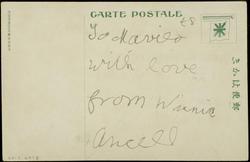 CARTE POSTALE
£8
To Mavis
with love
from Winnie
Ancell
きかは便郵